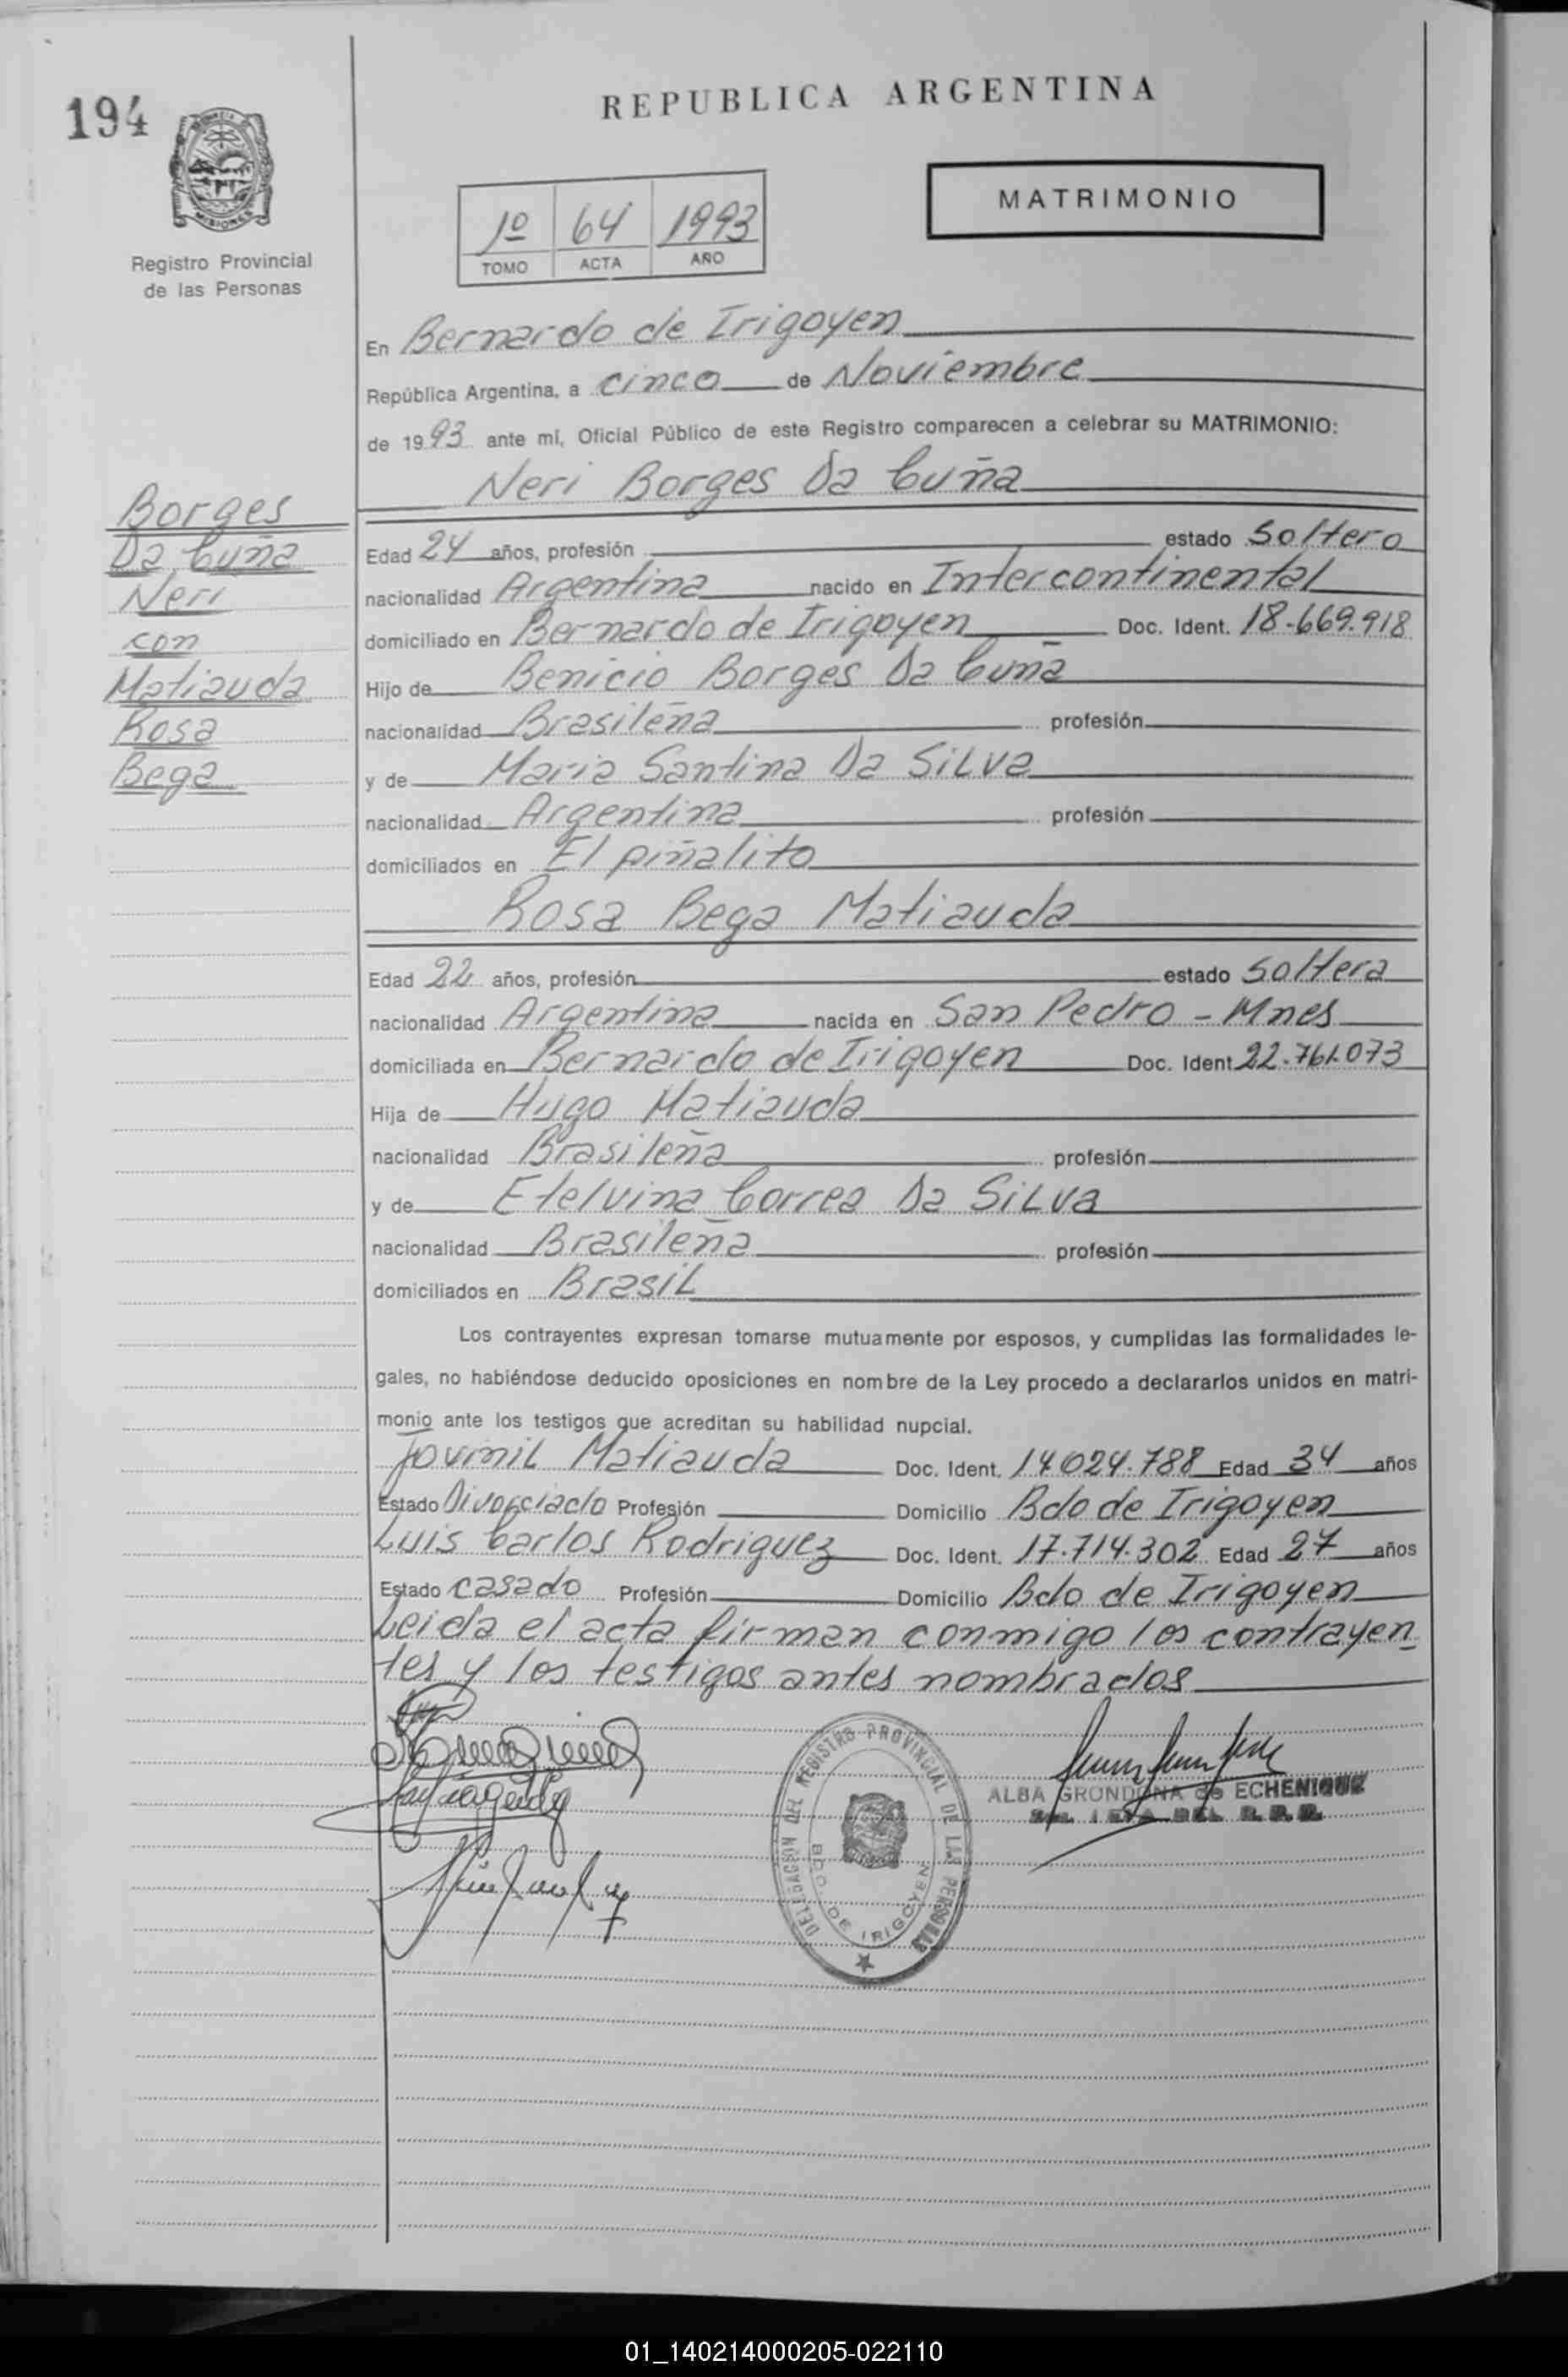 194
MISIONES
Registro Provincial
de las Personas
REPUBLICA ARGENTINA
1º 64 1993
TOMO ACTA AÑO
MATRIMONIO
En Bernardo de Irigoyen
República Argentina, a cinco de Noviembre
de 1993 ante mí, Oficial Público de este Registro comparecen a celebrar su MATRIMONIO:
Neri Borges Da Cuña
Borges
Da Cuña
Neri
con
Matiauda
Rosa
Bega
Edad 24 años, profesión estado Soltero
nacionalidad Argentina nacido en Intercontinental
domiciliado en Bernardo de Irigoyen Doc. Ident. 18.669.918
Hijo de Benicio Borges Da Cuña
nacionalidad Brasileña profesión
y de Maria Santina Da SiLva
nacionalidad Argentina profesión
domiciliados en El piñalito
Rosa Bega Matiauda
Edad 22 años, profesión estado Soltera
nacionalidad Argentina nacida en San Pedro - Mnes
domiciliada en Bernardo de Irigoyen Doc. Ident 22.761.073
Hija de Hugo Matiauda
nacionalidad Brasileña profesión
y de Etelvina Correa Da SiLva
nacionalidad Brasileña profesión
domiciliados en BrasiL
Los contrayentes expresan tomarse mutuamente por esposos, y cumplidas las formalidades le-
gales, no habiéndose deducido oposiciones en nombre de la Ley procedo a declararlos unidos en matri-
monio ante los testigos que acreditan su habilidad nupcial.
JovmiL Matiauda Doc. Ident. 14.024.788 Edad 34 años
Estado Divorciado Profesión Domicilio Bdo de Irigoyen
Luis Carlos Rodriguez Doc. Ident. 17.714.302 Edad 27 años
Estado casado Profesión Domicilio Bdo de Irigoyen
Leida el acta firman conmigo los contrayen
tes y los testigos antes nombrados
DELEGACION DEL REGISTRO PROVINCIAL DE LAS PERSONAS
BDO. DE IRIGOYEN
ALBA GRONDONA de ECHENIQUE
01_140214000205-022110